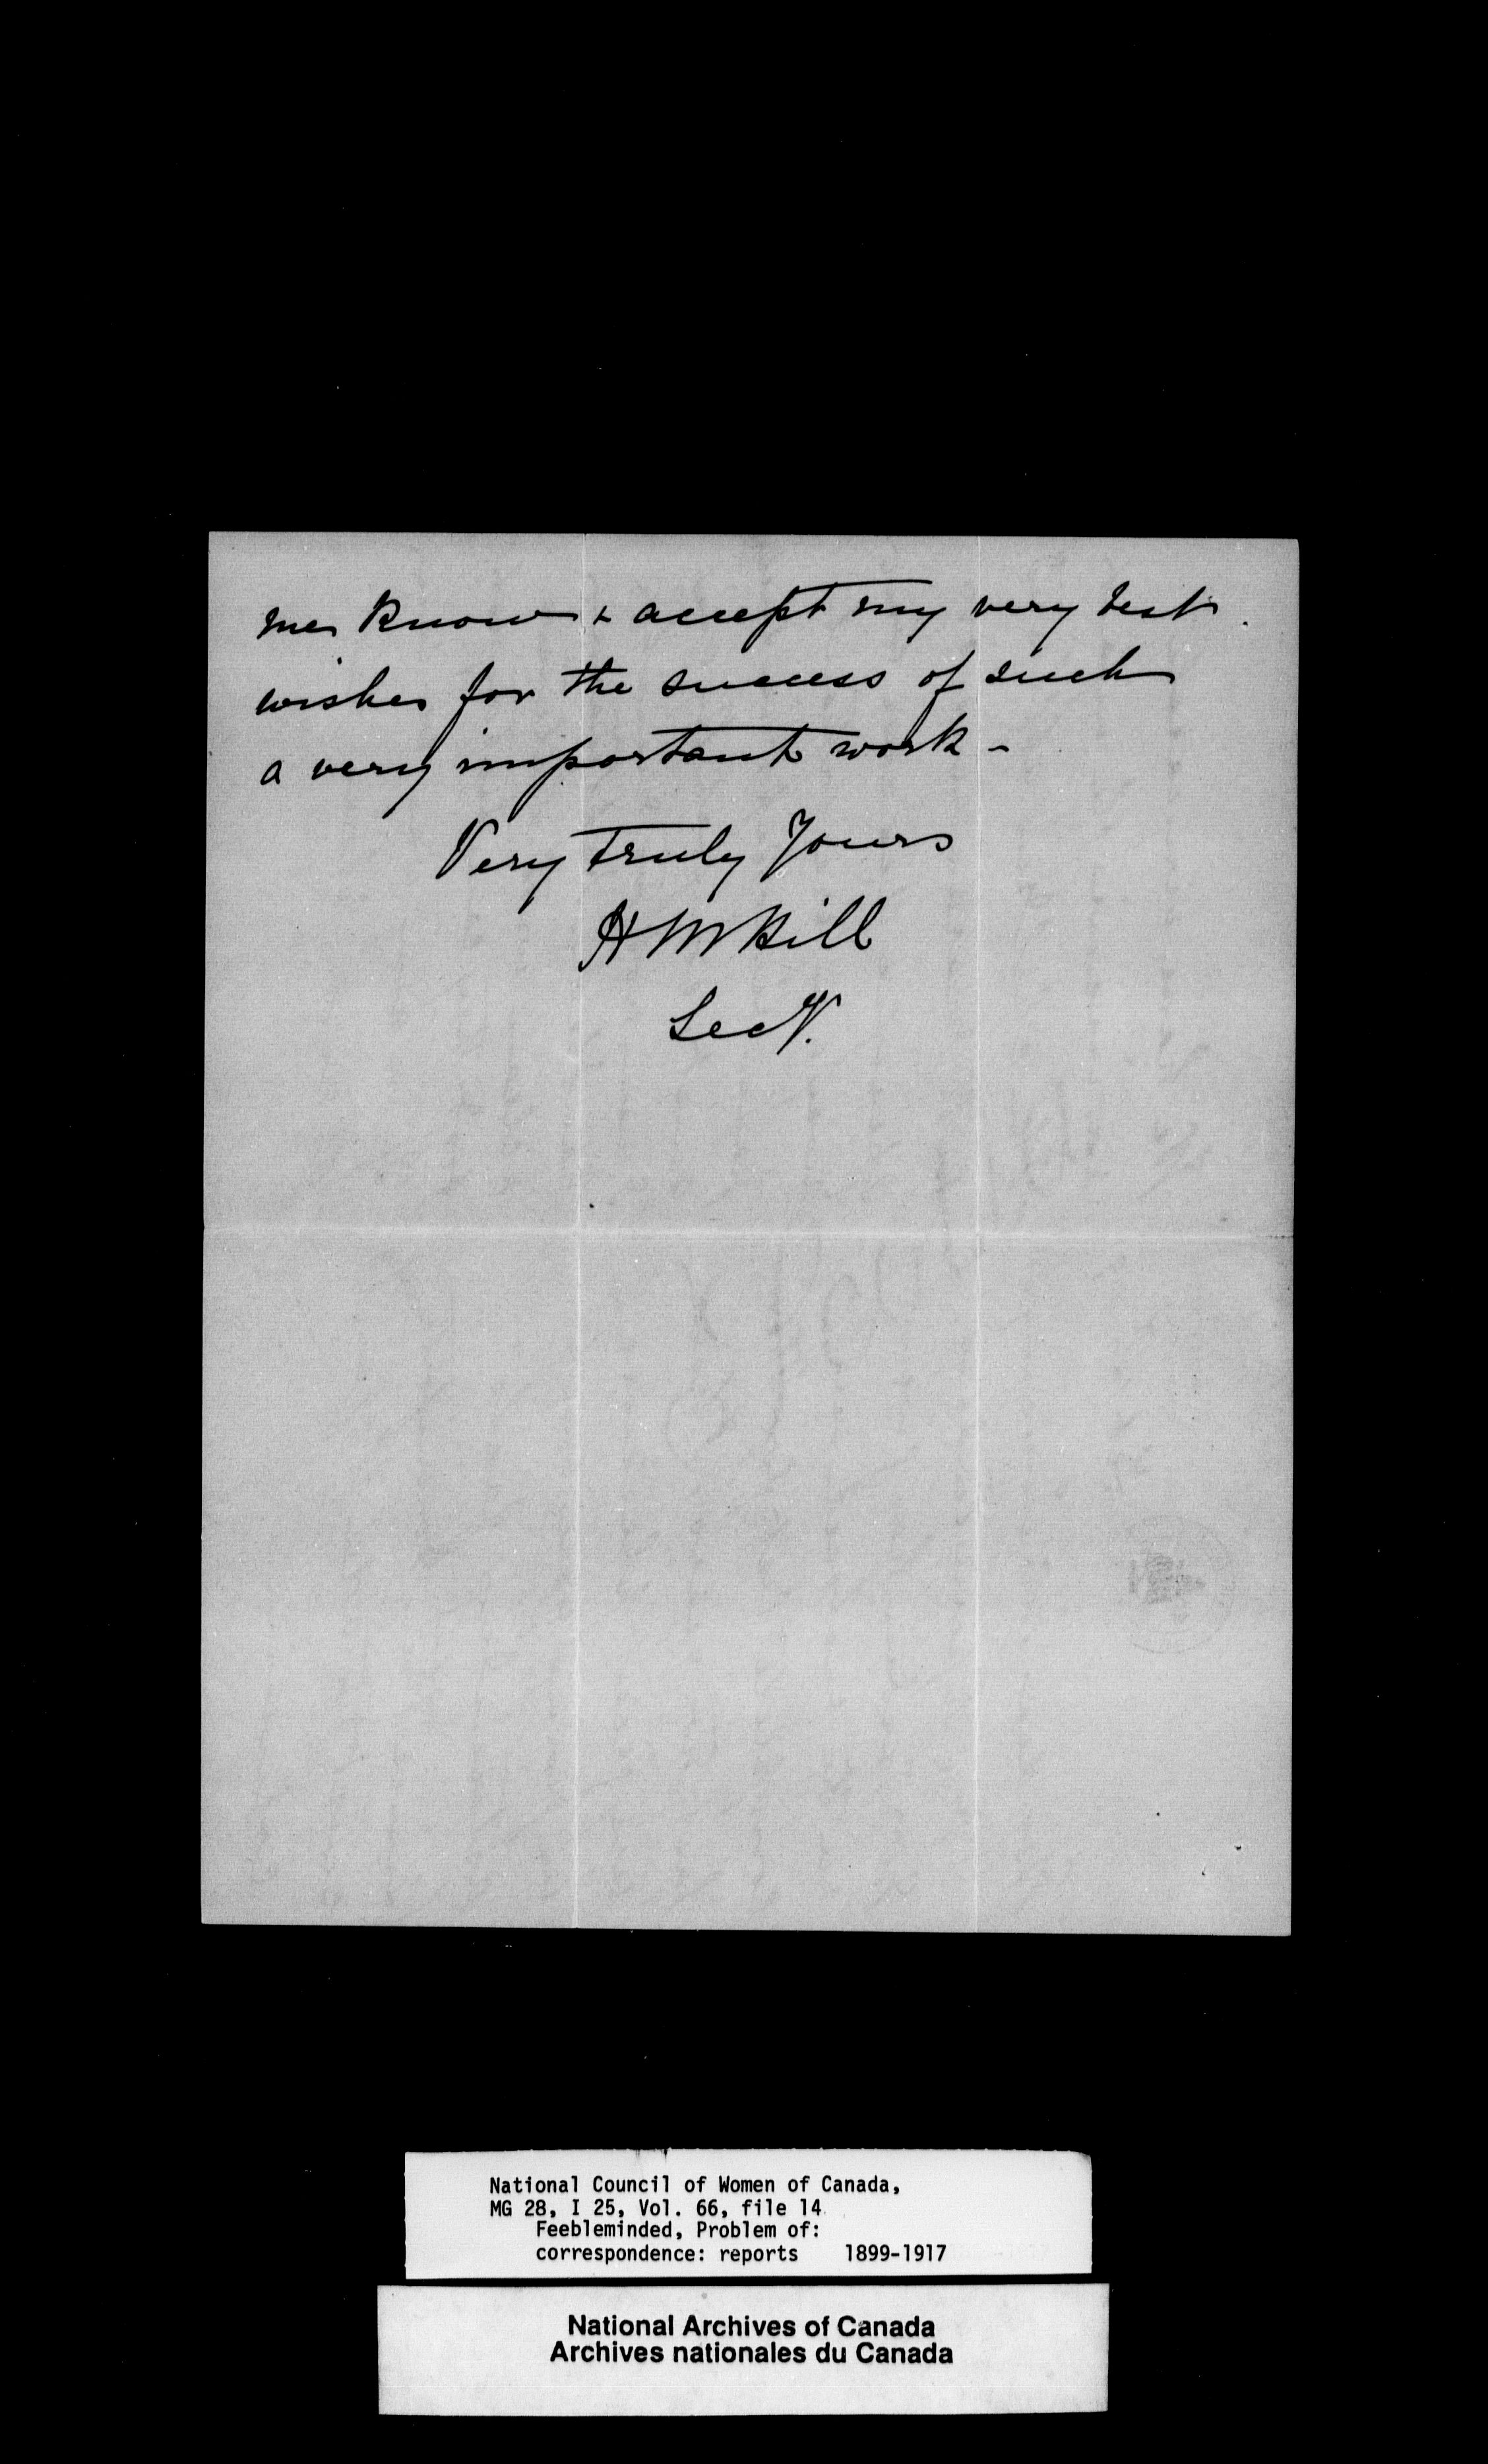 me know & accept my very best
wishes for the success of such
a very important work -
Very truly Yours
H M Hill
Secy.
National Council of Women of Canada,
MG 28, I 25, Vol. 66, file 14
Feebleminded, Problem of:
correspondence: reports 1899-1917
National Archives of Canada
Archives nationales du Canada